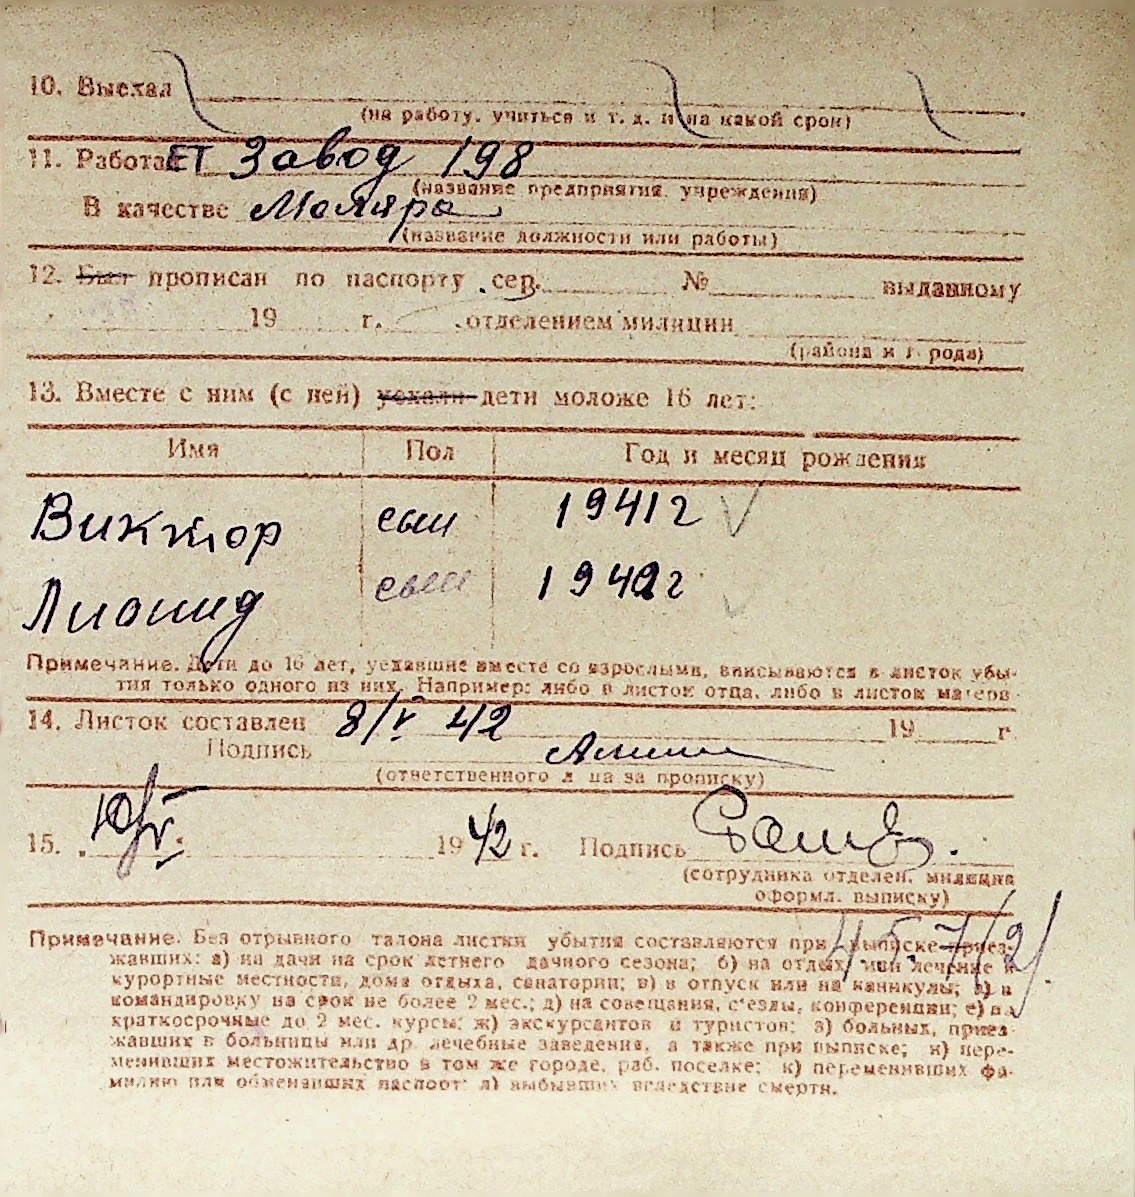 10. Выехал
(на работу, учиться и т. д. и на какой срок)
11. Работает Завод 198
(название предприятия, учреждения)
В качестве Маляра
(название должности или работы)
12. Был прописан по паспорту сер. № выданному
19 г. отделением милиции
(района и города)
13. Вместе с ним (с ней) уехали дети моложе 16 лет:
Имя Пол Год и месяц рождения
Виктор сын 1941г
Лионид сын 1942г
Примечание. Дети до 16 лет, уехавшие вместе со взрослыми, вписываются в листок убы-
тия только одного из них. Например: либо в листок отца, либо в листок матери
14. Листок составлен 8/V 42 19 г
Подпись
(ответственного лица за прописку)
15. 10/V 1942 г. Подпись
(сотрудника отделен. милиции
оформл. выписку)
Примечание. Без отрывного талона листки убытия составляются при выписке приез-
жавших: а) на дачи на срок летнего дачного сезона; б) на отдых или лечение в
курортные местности, дома отдыха, санатории; в) в отпуск или на каникулы; г) в
командировку на срок не более 2 мес.; д) на совещания, съезды, конференции; е) на
краткосрочные до 2 мес. курсы; ж) экскурсантов и туристов; з) больных, приез-
жавших в больницы или др. лечебные заведения, а также при выписке; и) пере-
менивших местожительство в том же городе, раб. поселке; к) переменивших фа-
милию или обменявших паспорт; л) выбывших вследствие смерти.